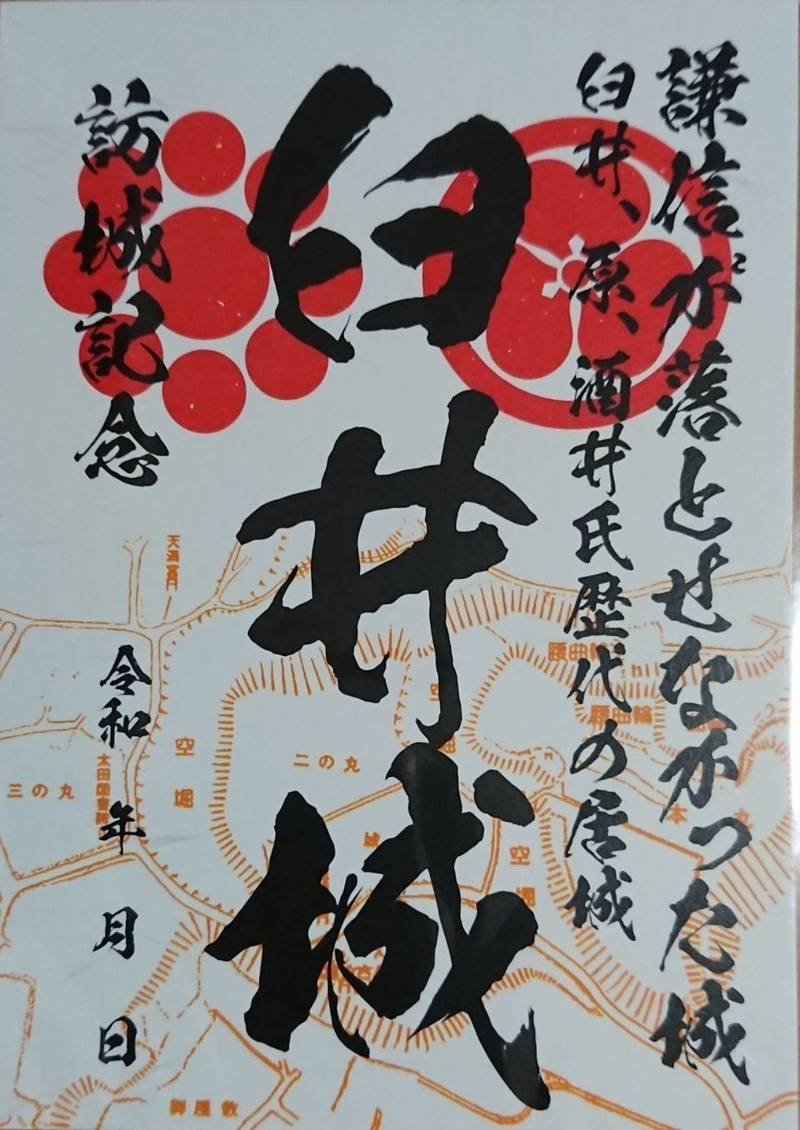 謙信が落とせなかった城
臼井、原、酒井氏歴代の居城
臼井城
訪城記念
令和 年 月 日
天満宮
腰曲輪
腰曲輪
空堀
二の丸
三の丸
空堀
御屋敷